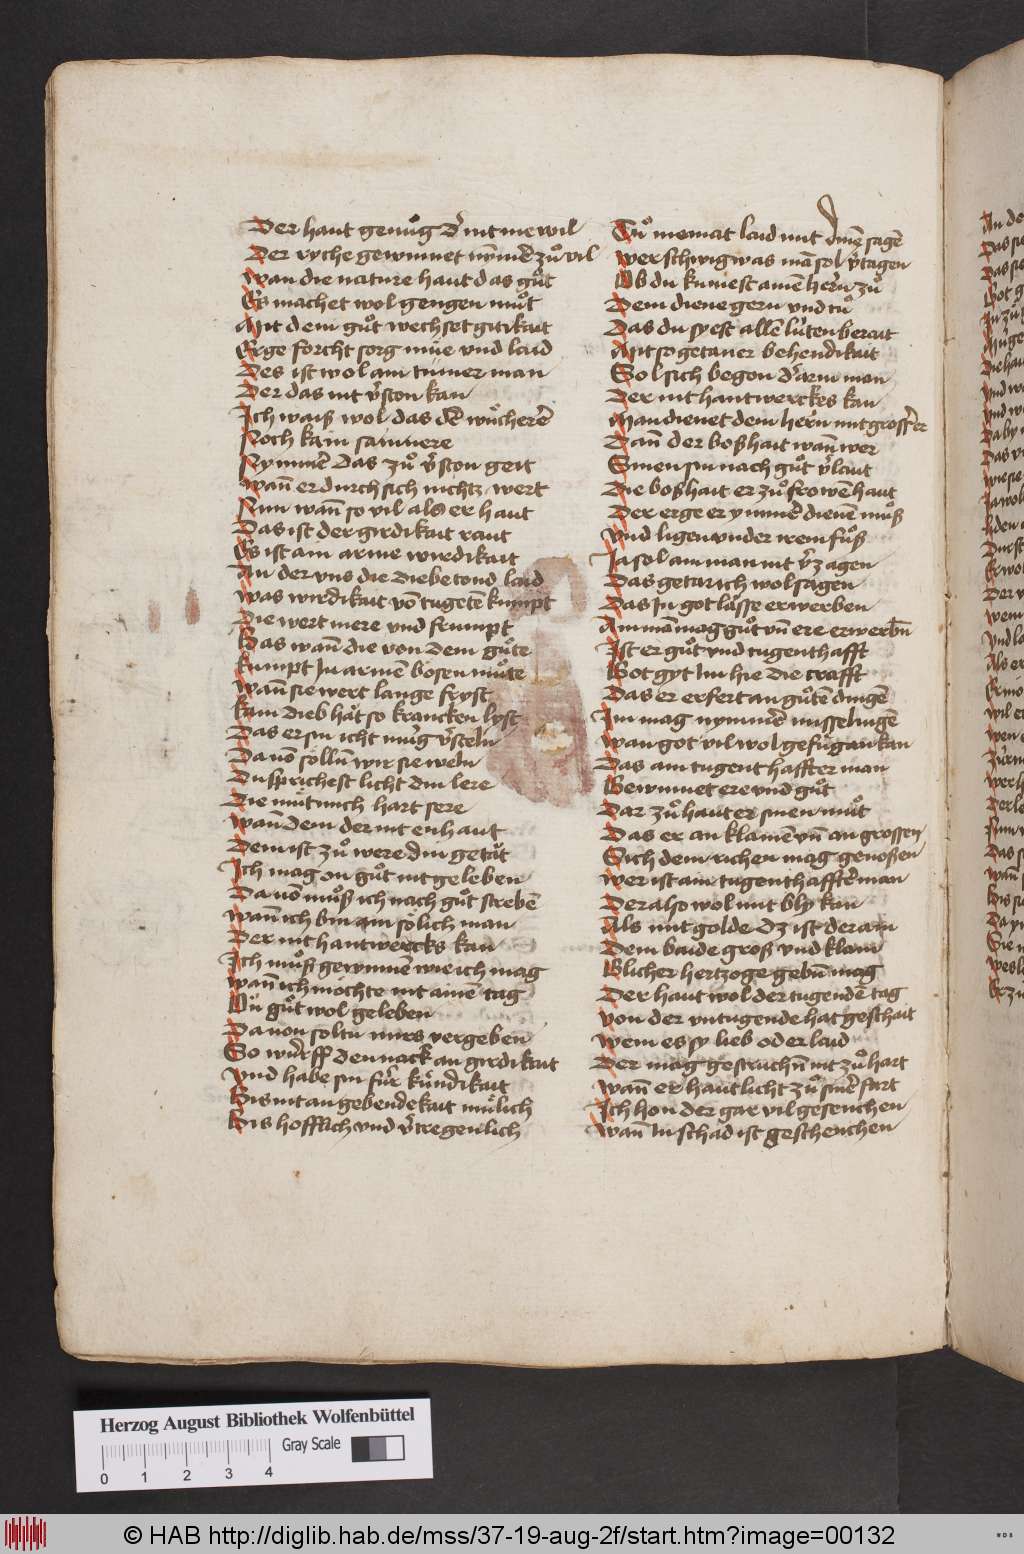 Der haut genuͦg d' nit me wil
Der ryche gewinnet nȳm̄er zuͦ vil
wan die nature haut das guͦt
Es machet wol gengen muͦt
Mit dem guͦt wechset girikait
Erge forcht sorg müe vnd laid
Des ist wol ain tumer man
Der das nit v'ston kan
Ich waiß wol das dē wuͦcherē
Noch kain samnere
Nymmē das zuͦ v'ston geit
wan̄ er durch sich nichtz wert
Nun wan̄ so vil als er haut
Das ist der girdikait raut
Es ist ain arme wirdikait
An der vns die diebe tond laid
was wirdikait vō tugetē kumpt
Die wert mere vnd frumpt
Das wan̄ die von dem guͦte
kumpt In armē bosen muͦte
wan̄ sie wert lange fryst
kain dieb hät so krancken lyst
Das er sin icht mug v'steln
Da uō solln̄ wir sie weln
Du sprichest licht din lere
Die müt mich hart sere
wan̄ dem der nit enhaut
Dem ist zuͦ were din getät
Ich mag on guͦt nit geleben
Da uō muͦß ich nach guͦt strebē
wan̄ ich bin ain sölich man
Der nit hantwercks kan
Ich muͦß gewinnē wie ich mag
wan̄ ich möchte nit ainē tag
On guͦt wol geleben
Da uon soltu mirs vergeben
So würff den nack an girdikait
vnd habe sin für kündikait
Bis nit an gebendekait mülich
Bis hofflich vnd v'tregenlich
Tuͦ niemat laid mit dinē sagē
wer schwig was mā sol v'tagen
Ob du kumest ainē hern zuͦ
Dem diene gern vnd tuͦ
Das du syest allē lüten berait
Mit so getaner behendikait
Sol sich begon d' arm man
Der nit hantwerckes kan
Man dienet dem hern mit grosser er
Dan̄ der boßhait wan̄ wer
Sinen sin nach guͦt v'laut
Die boßhait er zuͦ frowē haut
Der erge er ymmē dienē muͦß
vnd ligen vnder irem fuͦß
Ja sol ain man nit v'zagen
Das getar ich wol sagen
Das In got lässe erwerben
Ain mā mag guͦt vn̄ ere erwerbn̄
Ist er guͦt vnd tugenthafft
Got gyt Im hie die crafft
Das er erfert an guͦtē dingē
Im mag nymmē misselingē
wan got vil wol gefügan kan
Das ain tugenthaffter man
Gewinnet ere vnd guͦt
Dar zuͦ haut er sinen muͦt
Das er an klainē vn̄ an grossen
Sich dem richen mag genoßen
wer ist ain tugenthaffter man
Der also wol mit bly kan
Als mit golde dz ist der ain
Dem baide groß vnd klain
Glicher hertzoge gebn̄ mag
Der haut wol der tugendē tag
von der vntugende hat geschait
wem es sy lieb oder laid
Der mag gestruchn̄ nit zuͦ hart
wan̄ er haut licht zuͦ sinē fart
Ich hon der gar vil gesenchen
wan̄ In schad ist geschenchen
Herzog August Bibliothek Wolfenbüttel
Gray Scale
0 1 2 3 4
© HAB http://diglib.hab.de/mss/37-19-aug-2f/start.htm?image=00132